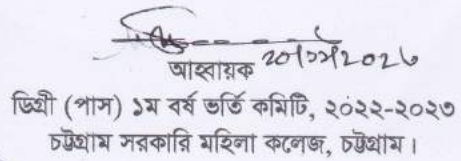 ২০/১১/২০২৩
আহ্বায়ক
ডিগ্রী (পাস) ১ম বর্ষ ভর্তি কমিটি, ২০২২-২০২৩
চট্টগ্রাম সরকারি মহিলা কলেজ, চট্টগ্রাম।